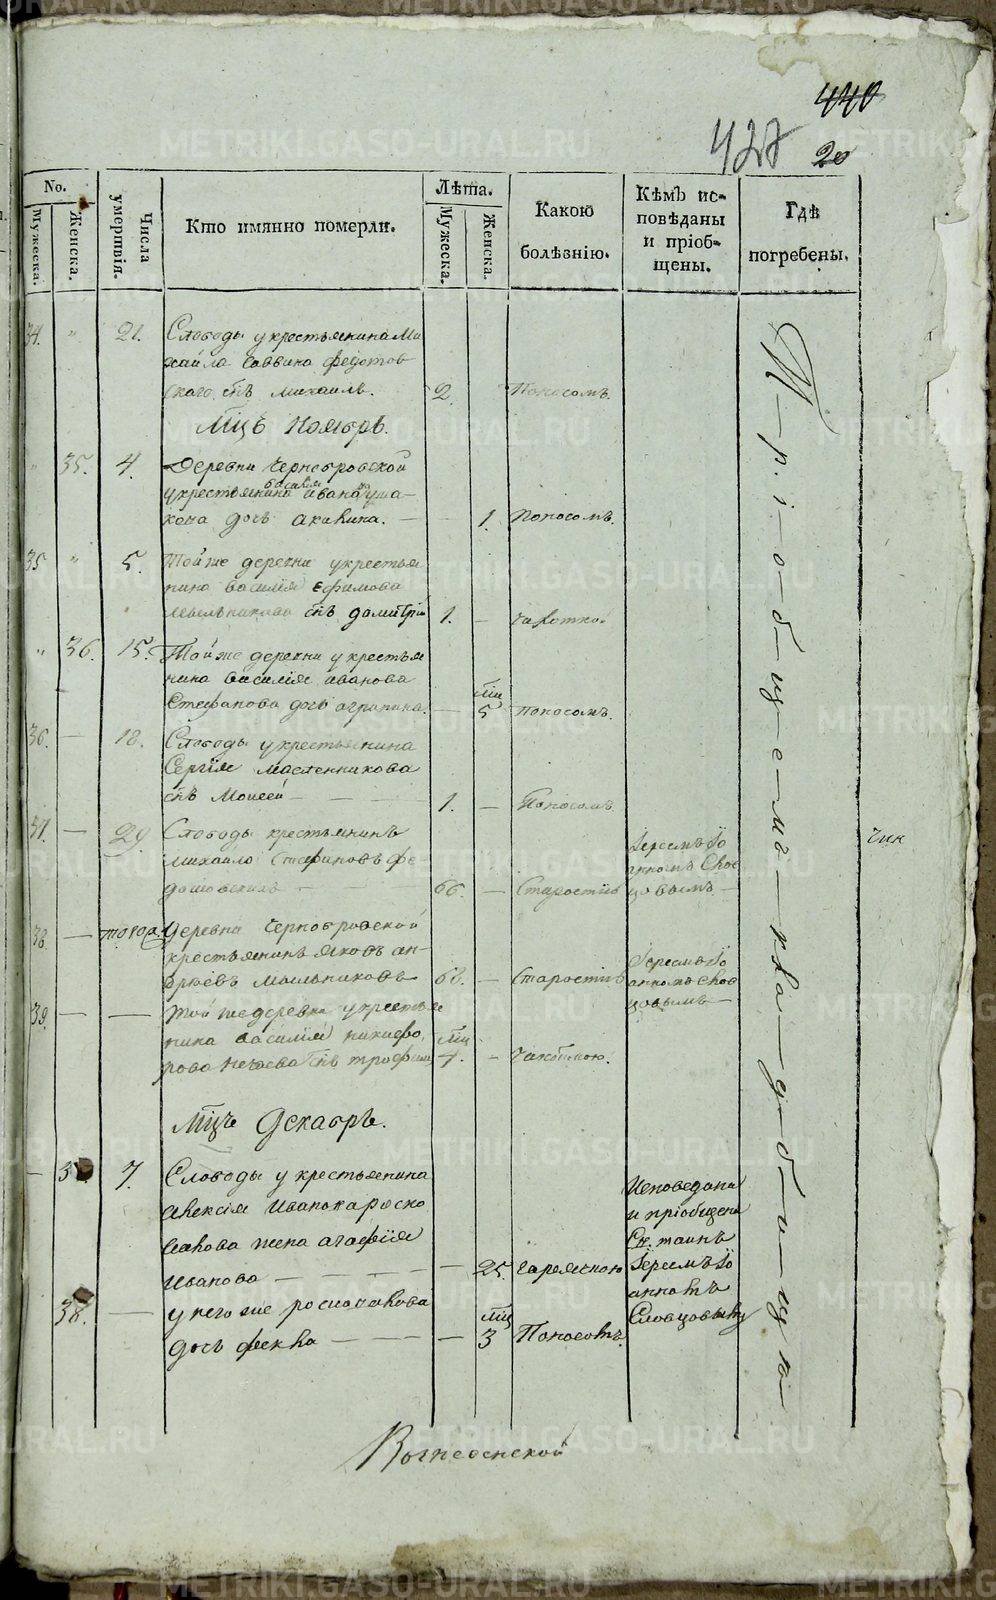 440
427
20
No.
Мужеска.
Женска.
Числа умертвія.
Кто имянно померли.
Лѣта.
Мужеска.
Женска.
Какою
болѣзнію.
Кѣмъ ис-
повѣданы
и пріоб-
щены.
Гдѣ
погребены.
34. " 21. Слободы у крестьянина Ми
хаила Саввина Федотов
скаго снъ Михаилъ. 2. Поносомъ.
Мцъ Ноябрь.
" 35. 4. Деревни Чернобровской
у крестьянина Василья Ивано Уша-
кова дочь Акилина. — — 1. Поносомъ.
35 " 5. Той же деревни у крестья
нина Василія Ефимова
Мыльникова снъ Домитрій 1. — чахоткой
" 36. 15. Той же деревни у крестья
нина Василія Иванова
Стефанова дочь Агрипина. — мцъ 5 Поносомъ.
36. — 18. Слободы у крестьянина
Сергія Масленникова
снъ Моисей — — — 1. — Поносомъ
37. — 29. Слободы крестьянинъ
Михаило Стефановъ Фе-
дотовскихъ — — — 66. — Старостію
Іереемъ Іо
анномъ Слов
цовымъ —
38. — тогож Деревни Чернобровской
крестьянинъ Яковъ Ан-
дреевъ Мыльниковъ 68. — Старостію
Іереемъ Іо
анномъ Слов
цовымъ —
39. — — Той же деревни у крестья
нина Василія Никифо
рова Нечаева снъ Трофимъ мцъ 4. —
Мцъ Декабрь.
— 37. 7. Слободы у крестьянина
Алексія Иванова Роско
лахова жена Агафія
Иванова — — — — 25. горячкою
Исповедана
и пріобщена
Св. таинъ
Іереемъ Іо
анномъ
Словцовымъ
38. — у него же Росколахова
дочь Фекла — — — — мцъ 3 Поносомъ
П-р-і-о-б-щ-е-м-ъ-к-л-а-д-б-и-щ-ѣ
чик
Вознесенской
METRIKI.GASO-URAL.RU